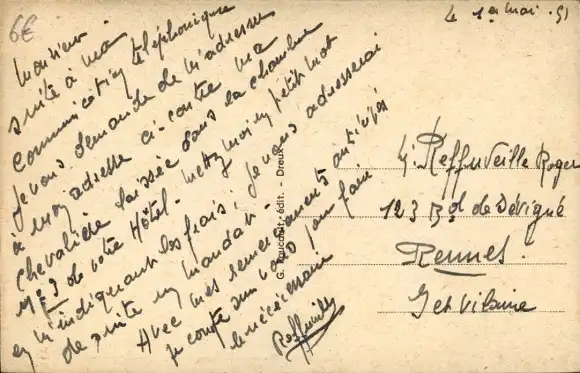 6€
Le 1er mai. 51
Monsieur.
suite à ma
communication téléphonique
je vous demande de m'adresser
à mon adresse ci-contre ma
Chevalière laissée dans la chambre
N° 3 de votre Hôtel. Mettez moi un petit mot
en m'indiquant les frais, je vous adresserai
de suite un mandat.
Avec mes remerciements anticipés
je compte sur vous pour faire
le nécessaire
Reffuveille
G. Foucault, édit. - Dreux
M. Reffuveille Roger
123 Bd de Sévigné
Rennes.
Ille et Vilaine